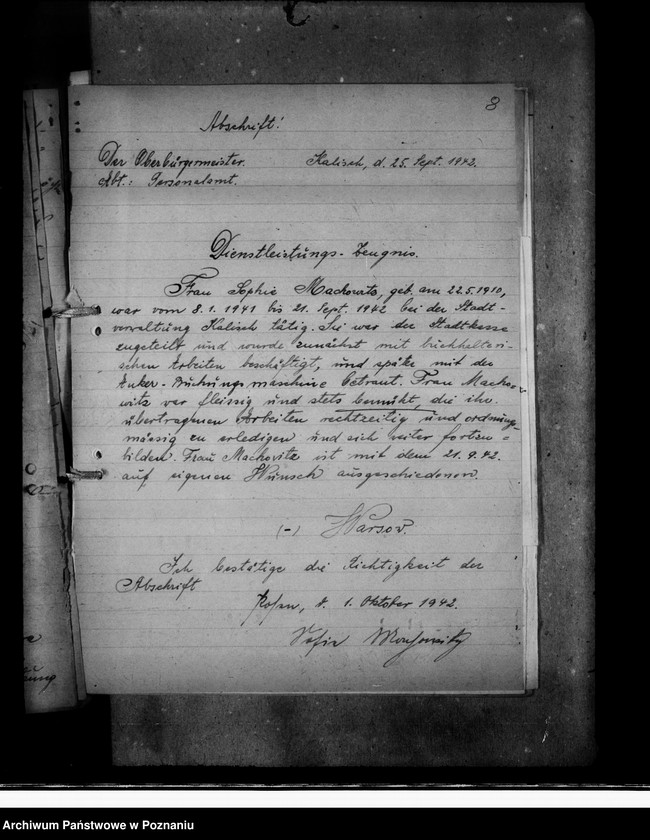 8
Abschrift!
Der Oberbürgermeister. Kalisch, d. 25. Sept. 1942.
Abt.: Personalamt.
Dienstleistungs-Zeugnis.
Frau Sophie Machowitz, geb. am 22.5.1910,
war vom 8.1.1941 bis 21. Sept. 1942 bei der Stadt-
verwaltung Kalisch tätig. Sie war der Stadtkasse
zugeteilt und wurde zunächst mit buchhalteri-
schen Arbeiten beschäftigt, und später mit der
Anker-Buchungsmaschine betraut. Frau Macho-
witz war fleissig und stets bemüht, die ihr
übertragenen Arbeiten rechtzeitig und ordnungs-
mässig zu erledigen und sich weiter fortzu=
bilden. Frau Machovitz ist mit dem 21.9.42.
auf eigenen Wunsch ausgeschiedenen.
(-) Warsow.
Ich bestätige die Richtigkeit der
Abschrift
Posen, d. 1. Oktober 1942.
Sofie
Archiwum Państwowe w Poznaniu